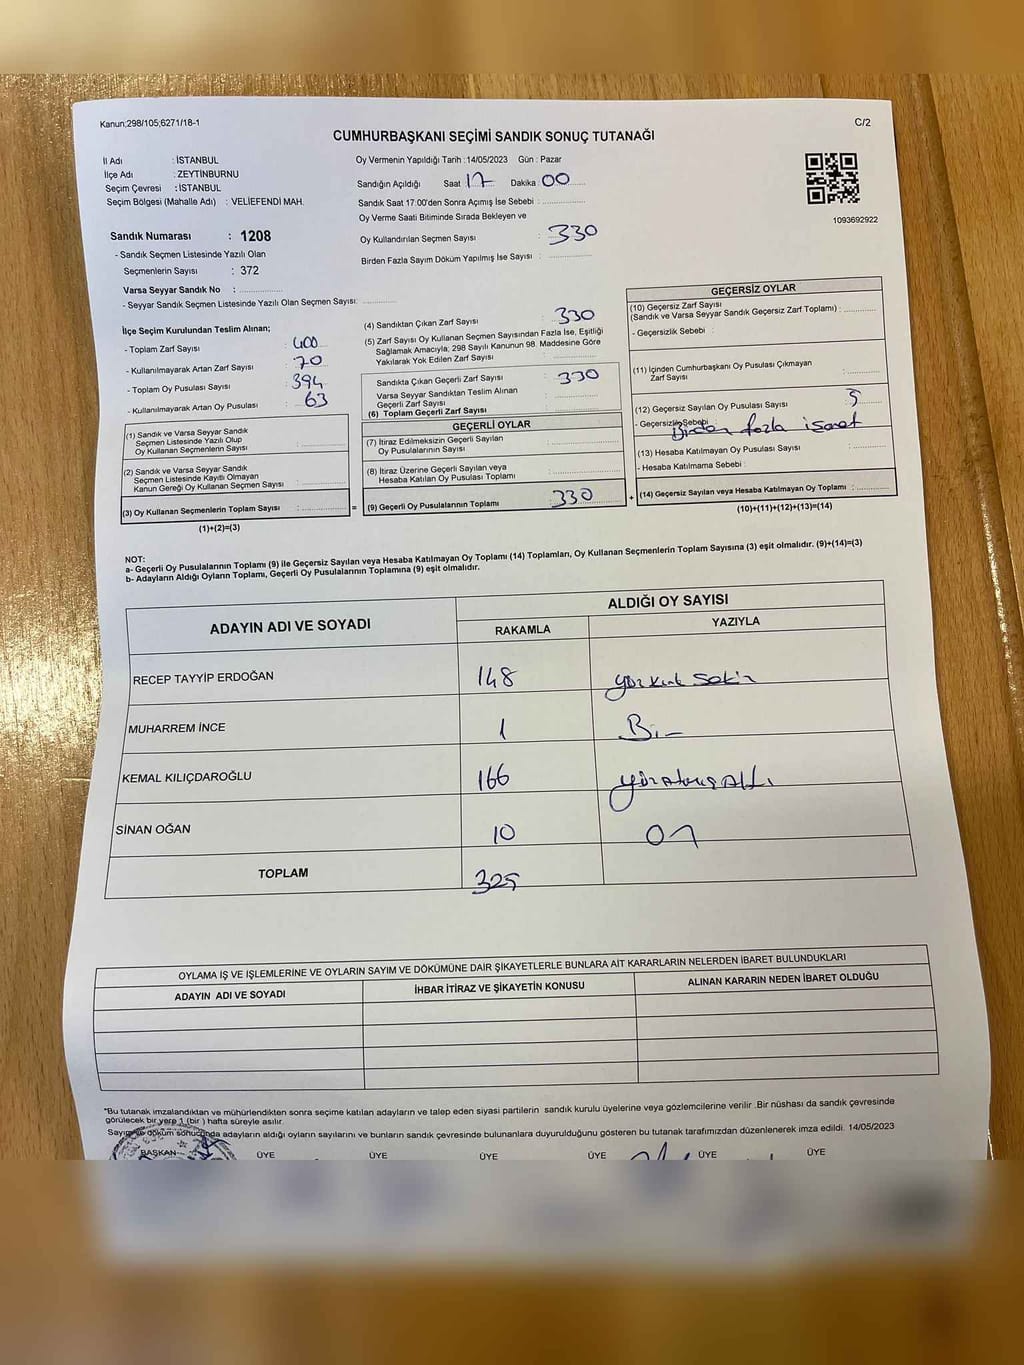 Kanun;298/105;6271/18-1
C/2
CUMHURBAŞKANI SEÇİMİ SANDIK SONUÇ TUTANAĞI
İl Adı : İSTANBUL
İlçe Adı : ZEYTİNBURNU
Seçim Çevresi : İSTANBUL
Seçim Bölgesi (Mahalle Adı) : VELİEFENDİ MAH.
Sandık Numarası : 1208
- Sandık Seçmen Listesinde Yazılı Olan
Seçmenlerin Sayısı : 372
Varsa Seyyar Sandık No :
- Seyyar Sandık Seçmen Listesinde Yazılı Olan Seçmen Sayısı:
Oy Vermenin Yapıldığı Tarih :14/05/2023 Gün : Pazar
Sandığın Açıldığı Saat 17 Dakika 00
Sandık Saat 17:00'den Sonra Açımış İse Sebebi :
Oy Verme Saati Bitiminde Sırada Bekleyen ve
Oy Kullandırılan Seçmen Sayısı : 330
Birden Fazla Sayım Döküm Yapılmış İse Sayısı :
1093692922
İlçe Seçim Kurulundan Teslim Alınan;
- Toplam Zarf Sayısı : 400
- Kullanılmayarak Artan Zarf Sayısı : 70
- Toplam Oy Pusulası Sayısı : 394
- Kullanılmayarak Artan Oy Pusulası : 63
(1) Sandık ve Varsa Seyyar Sandık
Seçmen Listesinde Yazılı Olup
Oy Kullanan Seçmen Sayısı :
(2) Sandık ve Varsa Seyyar Sandık
Seçmen Listesinde Kayıtlı Olmayan
Kanun Gereği Oy Kullanan Seçmen Sayısı :
(3) Oy Kullanan Seçmenlerin Toplam Sayısı : =
(1)+(2)=(3)
(4) Sandıktan Çıkan Zarf Sayısı : 330
(5) Zarf Sayısı Oy Kullanan Seçmen Sayısından Fazla İse, Eşitliği
Sağlamak Amacıyla; 298 Sayılı Kanunun 98. Maddesine Göre
Yakılarak Yok Edilen Zarf Sayısı :
Sandıkta Çıkan Geçerli Zarf Sayısı : 330
Varsa Seyyar Sandıktan Teslim Alınan
Geçerli Zarf Sayısı :
(6) Toplam Geçerli Zarf Sayısı :
GEÇERLİ OYLAR
(7) İtiraz Edilmeksizin Geçerli Sayılan
Oy Pusulalarının Sayısı :
(8) İtiraz Üzerine Geçerli Sayılan veya
Hesaba Katılan Oy Pusulası Toplamı :
(9) Geçerli Oy Pusulalarının Toplamı : 330 +
GEÇERSİZ OYLAR
(10) Geçersiz Zarf Sayısı
(Sandık ve Varsa Seyyar Sandık Geçersiz Zarf Toplamı) :
- Geçersizlik Sebebi :
(11) İçinden Cumhurbaşkanı Oy Pusulası Çıkmayan
Zarf Sayısı :
(12) Geçersiz Sayılan Oy Pusulası Sayısı : 5
- Geçersizlik Sebebi Birden fazla işaret
(13) Hesaba Katılmayan Oy Pusulası Sayısı :
- Hesaba Katılmama Sebebi :
(14) Geçersiz Sayılan veya Hesaba Katılmayan Oy Toplamı :
(10)+(11)+(12)+(13)=(14)
NOT:
a- Geçerli Oy Pusulalarının Toplamı (9) ile Geçersiz Sayılan veya Hesaba Katılmayan Oy Toplamı (14) Toplamları, Oy Kullanan Seçmenlerin Toplam Sayısına (3) eşit olmalıdır. (9)+(14)=(3)
b- Adayların Aldığı Oyların Toplamı, Geçerli Oy Pusulalarının Toplamına (9) eşit olmalıdır.
ADAYIN ADI VE SOYADI
ALDIĞI OY SAYISI
RAKAMLA YAZIYLA
RECEP TAYYİP ERDOĞAN 148 yüzkırk sekiz
MUHARREM İNCE 1 Bir
KEMAL KILIÇDAROĞLU 166 yüzatmışAltı
SİNAN OĞAN 10 On
TOPLAM 325
OYLAMA İŞ VE İŞLEMLERİNE VE OYLARIN SAYIM VE DÖKÜMÜNE DAİR ŞİKAYETLERLE BUNLARA AİT KARARLARIN NELERDEN İBARET BULUNDUKLARI
ADAYIN ADI VE SOYADI İHBAR İTİRAZ VE ŞİKAYETİN KONUSU ALINAN KARARIN NEDEN İBARET OLDUĞU
*Bu tutanak imzalandıktan ve mühürlendikten sonra seçime katılan adayların ve talep eden siyasi partilerin sandık kurulu üyelerine veya gözlemcilerine verilir .Bir nüshası da sandık çevresinde
görülecek bir yere 1 (bir ) hafta süreyle asılır.
döküm sonucunda adayların aldığı oyların sayılarını ve bunların sandık çevresinde bulunanlara duyurulduğunu gösteren bu tutanak tarafımızdan düzenlenerek imza edildi. 14/05/2023
BAŞKAN ÜYE ÜYE ÜYE ÜYE ÜYE ÜYE